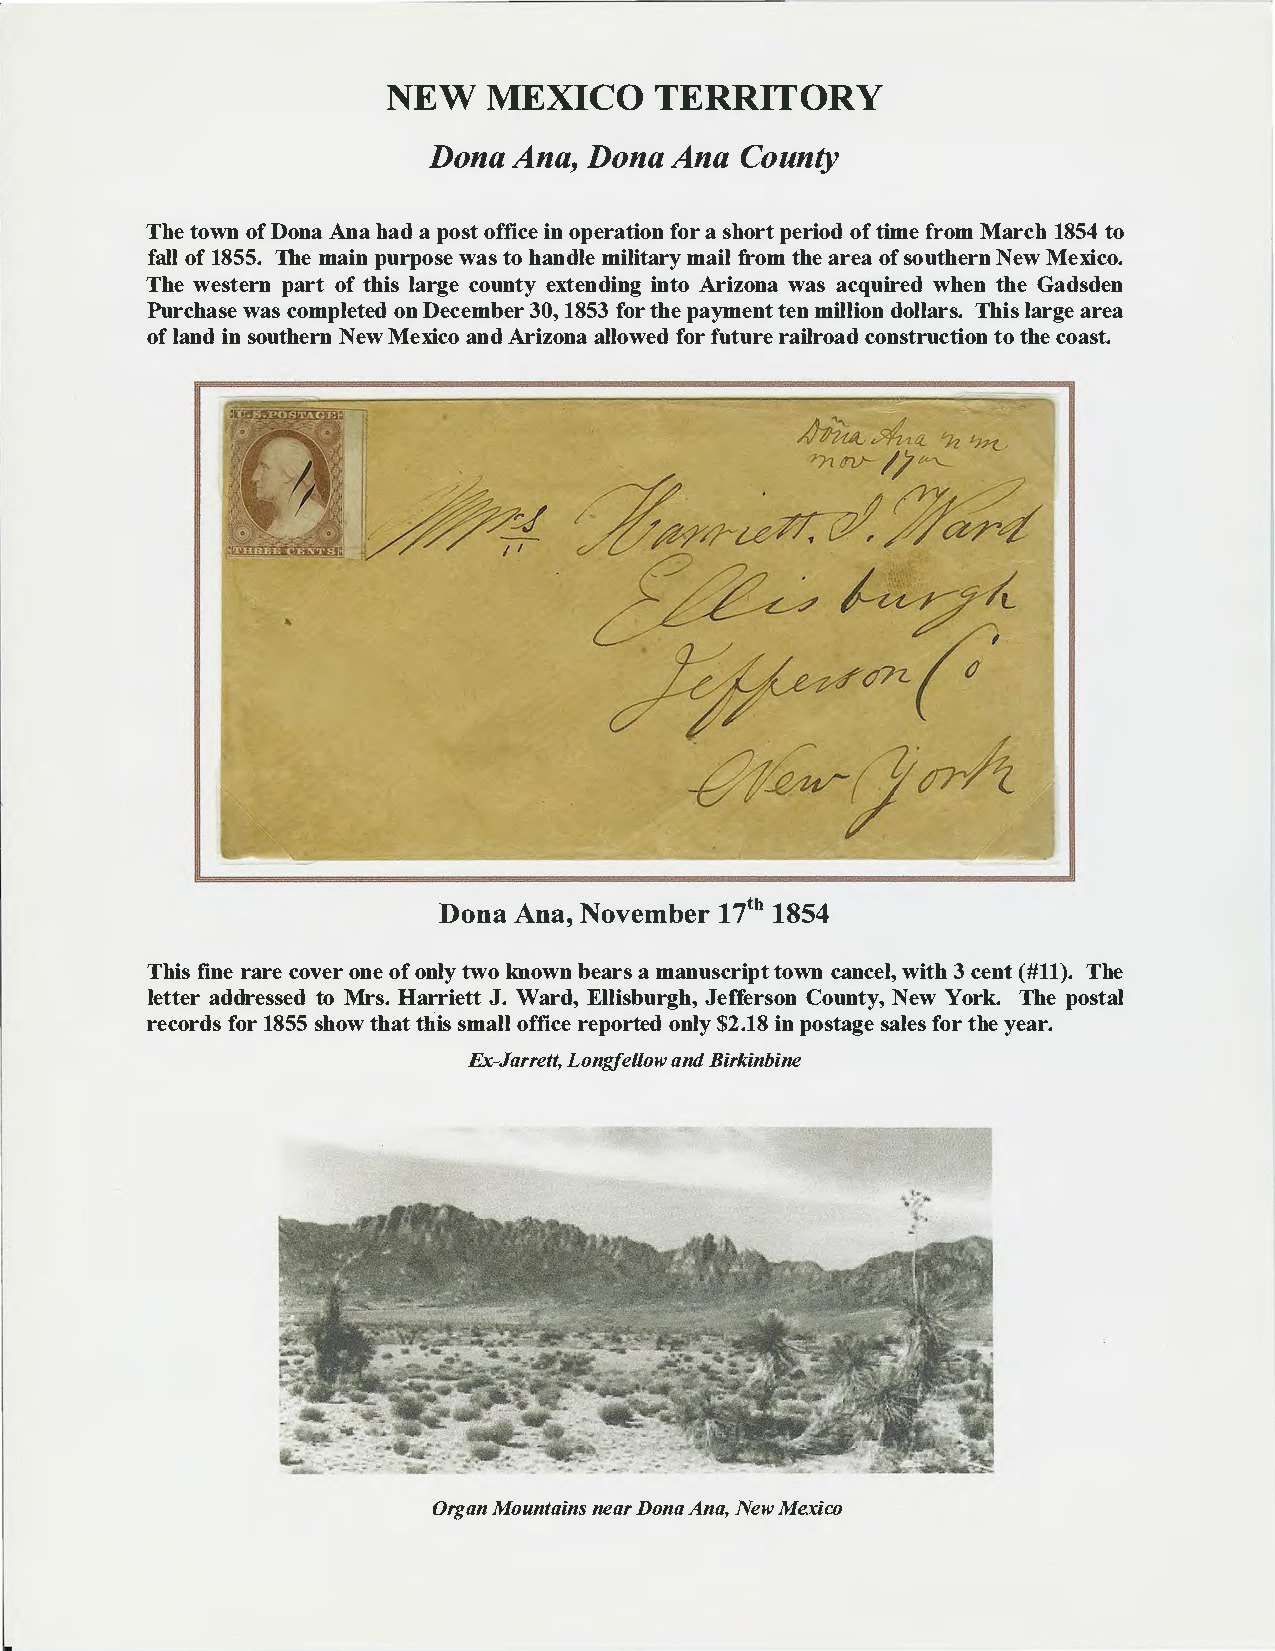 NEW MEXICO TERRITORY
Dona Ana, Dona Ana County
The town of Dona Ana had a post office in operation for a short period of time from March 1854 to
fall of 1855. The main purpose was to handle military mail from the area of southern New Mexico.
The western part of this large county extending into Arizona was acquired when the Gadsden
Purchase was completed on December 30, 1853 for the payment ten million dollars. This large area
of land in southern New Mexico and Arizona allowed for future railroad construction to the coast.
U.S. POSTAGE
THREE CENTS
Doña Ana N M
Nov 17th
Mrs Harriett. J. Ward
Ellisburgh
Jefferson Co
New York
Dona Ana, November 17th 1854
This fine rare cover one of only two known bears a manuscript town cancel, with 3 cent (#11). The
letter addressed to Mrs. Harriett J. Ward, Ellisburgh, Jefferson County, New York. The postal
records for 1855 show that this small office reported only $2.18 in postage sales for the year.
Ex-Jarrett, Longfellow and Birkinbine
Organ Mountains near Dona Ana, New Mexico